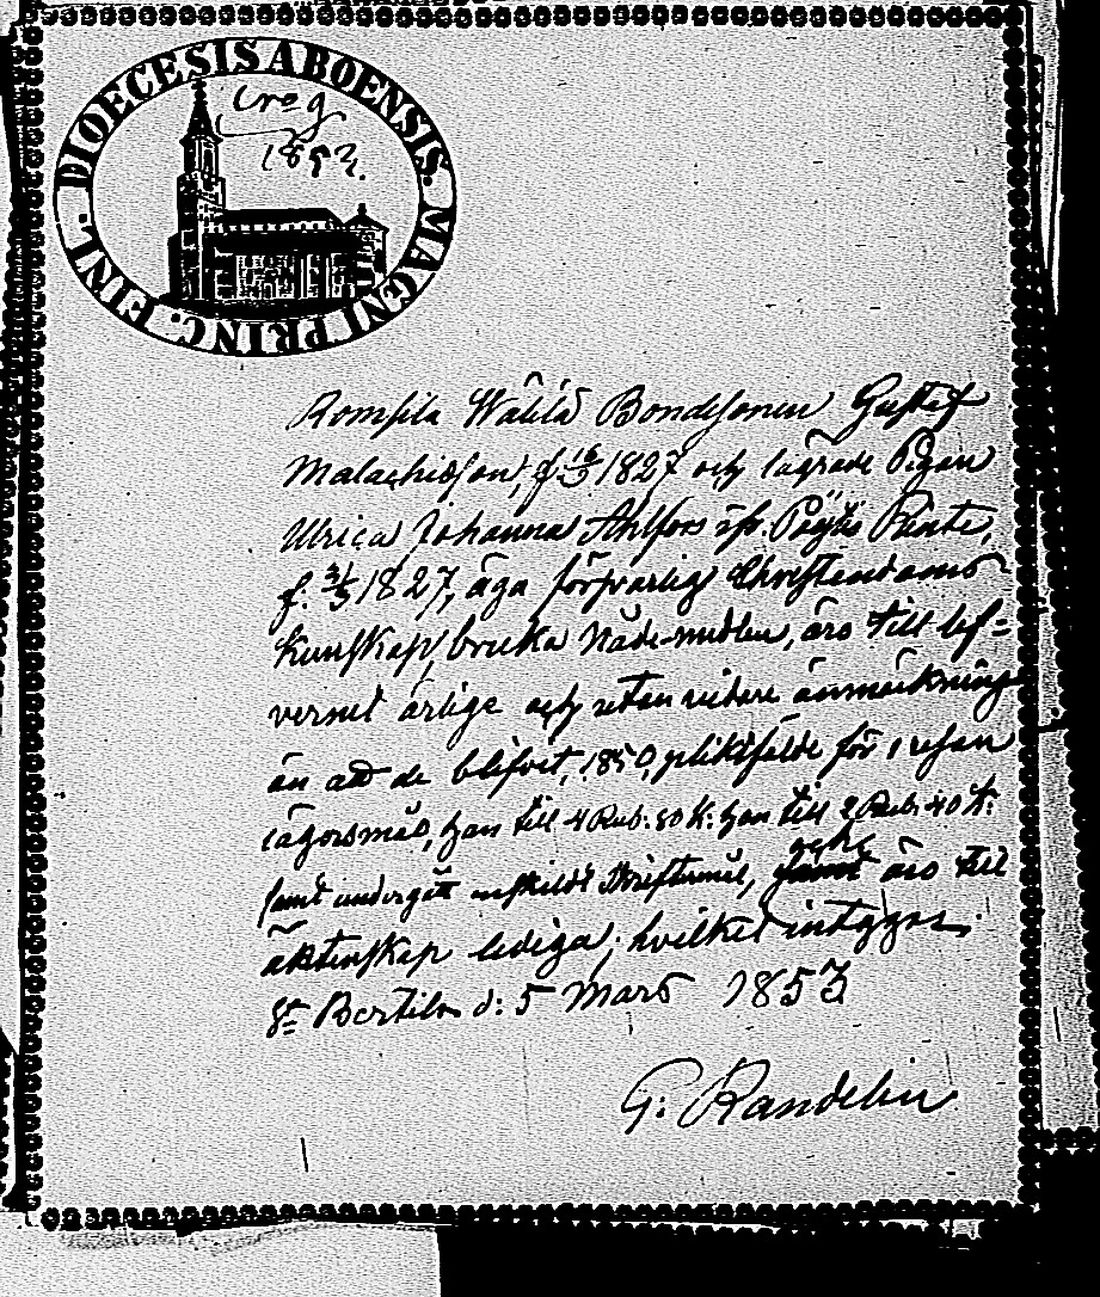 DIOECESIS ABOENSIS. MAGNI PRINC. FINL.
1853.
Romsila Wähä Bondesonen Gustaf
Malachiesson, f. 16/3 1827 och lägrade Pigan
Ulrica Johanna Ahlfors ifr. Pöytis
f. 3/5 1827, äga försvarlig Christendoms
kunskap, bruka Nådemedlen, äro till lef-
vernet ärlige och utan vidare anmärkning
än att de blifvit, 1850, pliktfälde för 1 resan
lägersmål, han till 4 Rub. 80 K. hon till 2 Rub. 40 K.
samt undergått enskildt Skriftemål, äro till
äktenskap lediga, hvilket intygas;
St Bertils d: 5 Mars 1853
G: Randelin